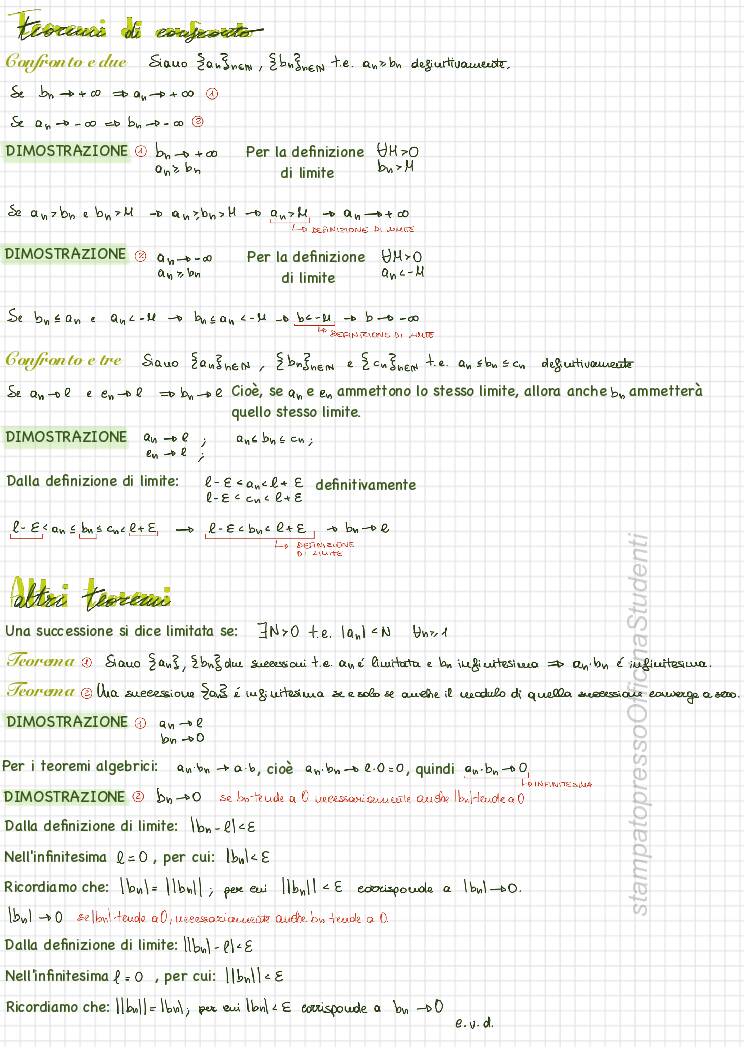 Teoremi di confronto
Confronto e due Siano {an}n∈N, {bn}n∈N t.c. an≥bn definitivamente.
Se bn→+∞ ⇒ an→+∞ ①
Se an→-∞ ⇒ bn→-∞ ②
DIMOSTRAZIONE ① bn→+∞ Per la definizione ∀M>0
an≥bn di limite bn>M
Se an>bn e bn>M → an≥bn>M → an>M → an→+∞
↳ DEFINIZIONE DI LIMITE
DIMOSTRAZIONE ② an→-∞ Per la definizione ∀M>0
an≥bn di limite an<-M
Se bn≤an e an<-M → bn≤an<-M → b<-M → b→-∞
↳ DEFINIZIONE DI LIMITE
Confronto e tre Siano {an}n∈N, {bn}n∈N e {cn}n∈N t.c. an≤bn≤cn definitivamente
Se an→l e cn→l ⇒ bn→l Cioè, se an e cn ammettono lo stesso limite, allora anche bn ammetterà
quello stesso limite.
DIMOSTRAZIONE an→l ; an≤bn≤cn;
cn→l ;
Dalla definizione di limite: l-ε<an<l+ε definitivamente
l-ε<cn<l+ε
l-ε<an≤bn≤cn<l+ε → l-ε<bn<l+ε → bn→l
↳ DEFINIZIONE
DI LIMITE
Altri teoremi
Una successione si dice limitata se: ∃N>0 t.c. |an|<N ∀n≥1
Teorema ① Siano {an}, {bn} due successioni t.c. an é limitata e bn infinitesima ⇒ an·bn é infinitesima.
Teorema ② Una successione {an} é infinitesima se e solo se anche il modulo di quella successione converge a zero.
DIMOSTRAZIONE ① an→l
bn→0
Per i teoremi algebrici: an·bn→a·b, cioè an·bn→l·0=0, quindi an·bn→0
↳ INFINITESIMA
DIMOSTRAZIONE ② bn→0 se bn tende a 0 necessariamente anche |bn| tende a 0
Dalla definizione di limite: |bn-l|<ε
Nell'infinitesima l=0, per cui: |bn|<ε
Ricordiamo che: |bn|=||bn||; per cui ||bn||<ε corrisponde a |bn|→0.
|bn|→0 se |bn| tende a 0, necessariamente anche bn tende a 0.
Dalla definizione di limite: ||bn|-l|<ε
Nell'infinitesima l=0, per cui: ||bn||<ε
Ricordiamo che: ||bn||=|bn|; per cui |bn|<ε corrisponde a bn→0
c.v.d.
stampatopressoOfficinaStudenti